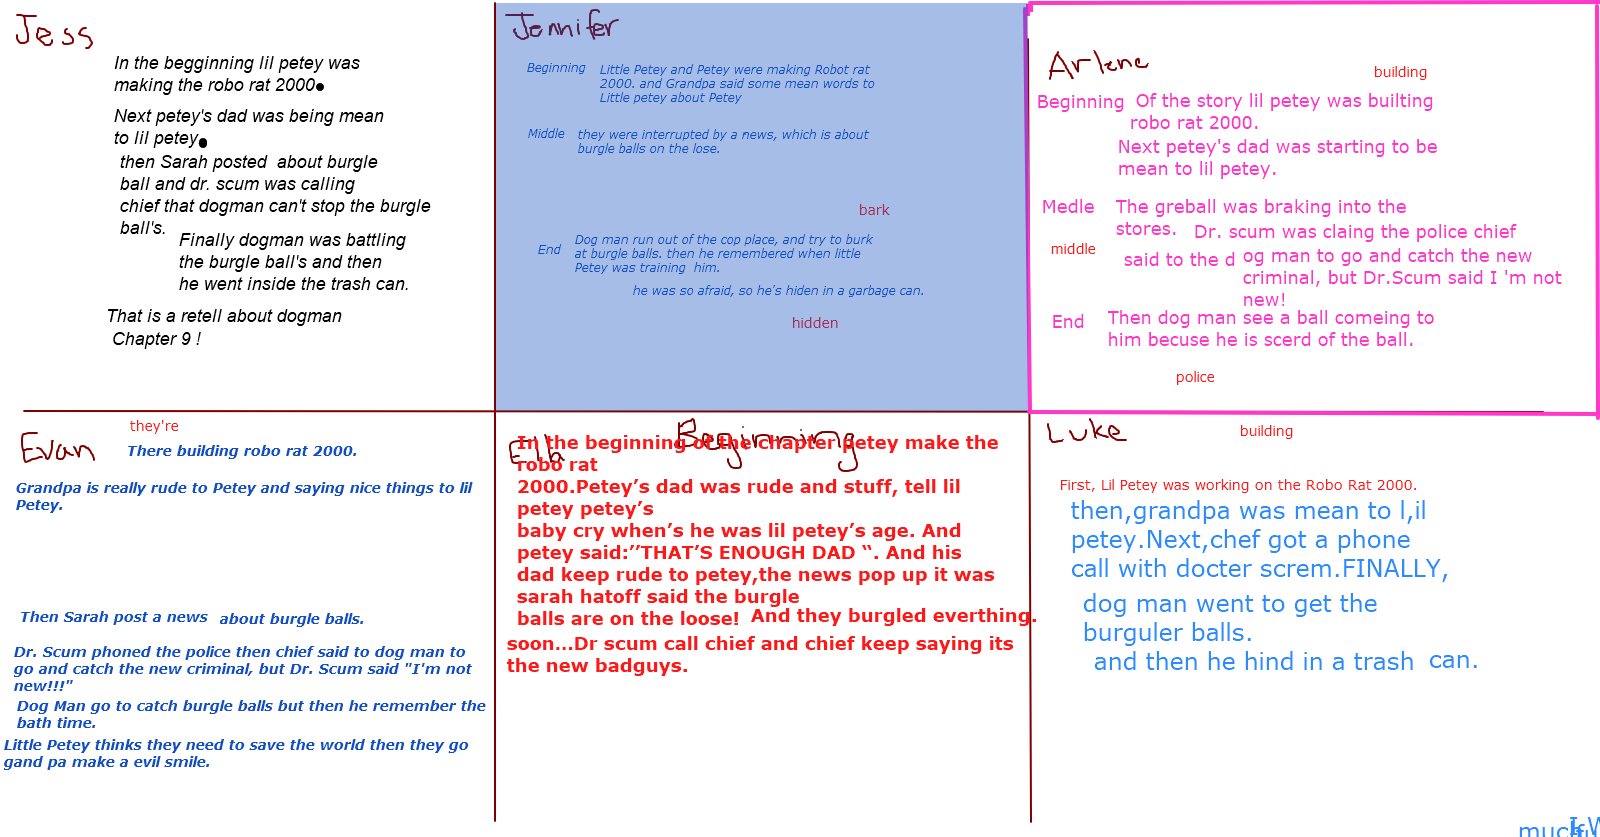 Jess
In the begginning lil petey was
making the robo rat 2000.
Next petey's dad was being mean
to lil petey.
then Sarah posted about burgle
ball and dr. scum was calling
chief that dogman can't stop the burgle
ball's.
Finally dogman was battling
the burgle ball's and then
he went inside the trash can.
That is a retell about dogman
Chapter 9 !
Jennifer
Beginning Little Petey and Petey were making Robot rat
2000. and Grandpa said some mean words to
Little petey about Petey
Middle they were interrupted by a news, which is about
burgle balls on the lose.
bark
End Dog man run out of the cop place, and try to burk
at burgle balls. then he remembered when little
Petey was training him.
he was so afraid, so he's hiden in a garbage can.
hidden
Arlene
building
Beginning Of the story lil petey was builting
robo rat 2000.
Next petey's dad was starting to be
mean to lil petey.
Medle The greball was braking into the
stores. Dr. scum was claing the police chief
middle
said to the d og man to go and catch the new
criminal, but Dr.Scum said I 'm not
new!
End Then dog man see a ball comeing to
him becuse he is scerd of the ball.
police
Evan
they're
There building robo rat 2000.
Grandpa is really rude to Petey and saying nice things to lil
Petey.
Then Sarah post a news about burgle balls.
Dr. Scum phoned the police then chief said to dog man to
go and catch the new criminal, but Dr. Scum said "I'm not
new!!!"
Dog Man go to catch burgle balls but then he remember the
bath time.
Little Petey thinks they need to save the world then they go
gand pa make a evil smile.
Ella
Beginning
In the beginning of the chapter petey make the
robo rat
2000.Petey’s dad was rude and stuff, tell lil
petey petey’s
baby cry when’s he was lil petey’s age. And
petey said:’’THAT’S ENOUGH DAD “. And his
dad keep rude to petey,the news pop up it was
sarah hatoff said the burgle
balls are on the loose! And they burgled everthing.
soon...Dr scum call chief and chief keep saying its
the new badguys.
Luke
building
First, Lil Petey was working on the Robo Rat 2000.
then,grandpa was mean to l,il
petey.Next,chef got a phone
call with docter screm.FINALLY,
dog man went to get the
burguler balls.
and then he hind in a trash can.